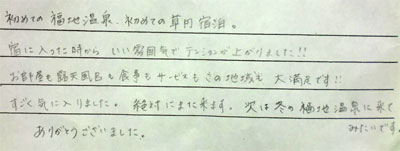 初めての福地温泉、初めての草円宿泊。
宿に入った時から いい雰囲気でテンションが上がりました!!
お部屋も露天風呂も食事もサービスもこの地域も 大満足です!!
すごく気に入りました。絶対にまた来ます。次は冬の福地温泉に来て
みたいです。
ありがとうございました。